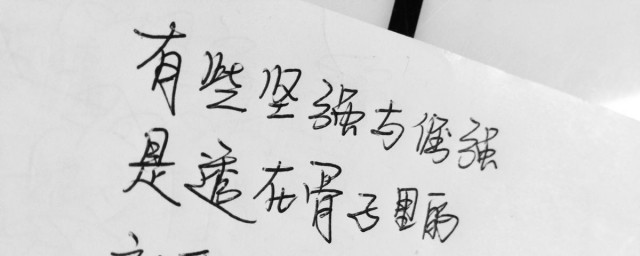 有些坚强与倔强
是透在骨子里的